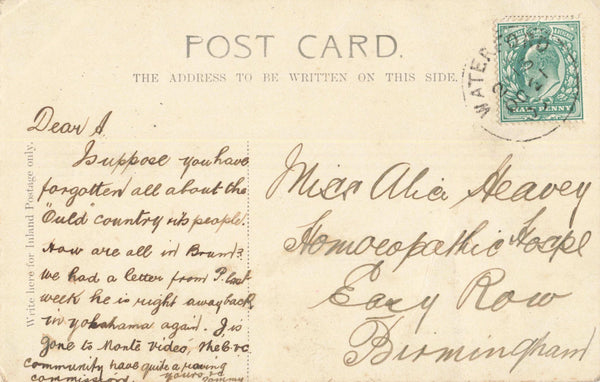 POST CARD.
THE ADDRESS TO BE WRITTEN ON THIS SIDE.
WATERFORD
HALF PENNY
Write here for Inland Postage only.
Dear A
I suppose you have
forgotten all about the
"Ould" country & its people
How are all in Brum?
We had a letter from P. last
week he is right away back
in yokohama again. J. is
gone to Monte Video, the
community have quite a roving
commission. yours &c
Tommy
Miss Alia Heavey
Homoeopathic Hospl
Easy Row
Birmingham